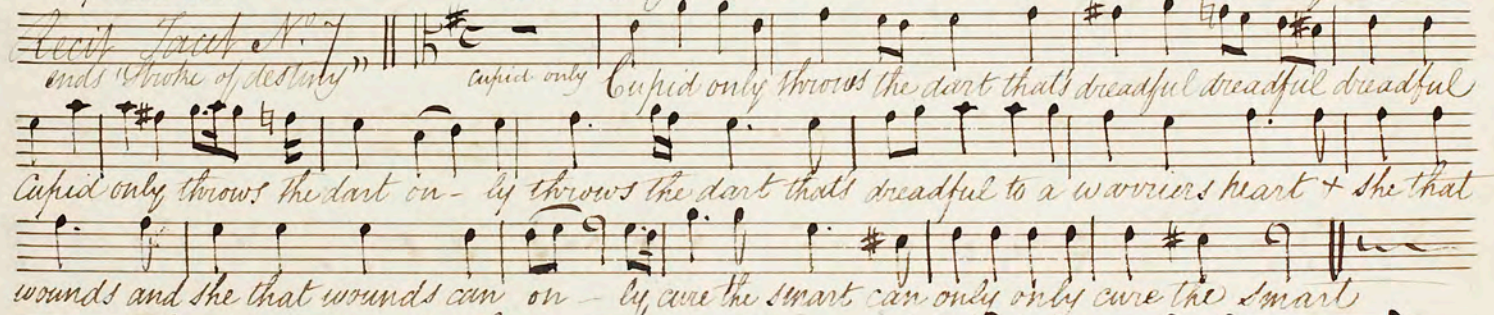 Recit Tacet No. 7
ends "Stroke of destiny" cupid only Cupid only throws the dart that's dreadful dreadful dreadful
Cupid only throws the dart on - ly throws the dart thats dreadful to a warriers heart + she that
wounds and she that wounds can on - ly cure the smart can only only cure the smart